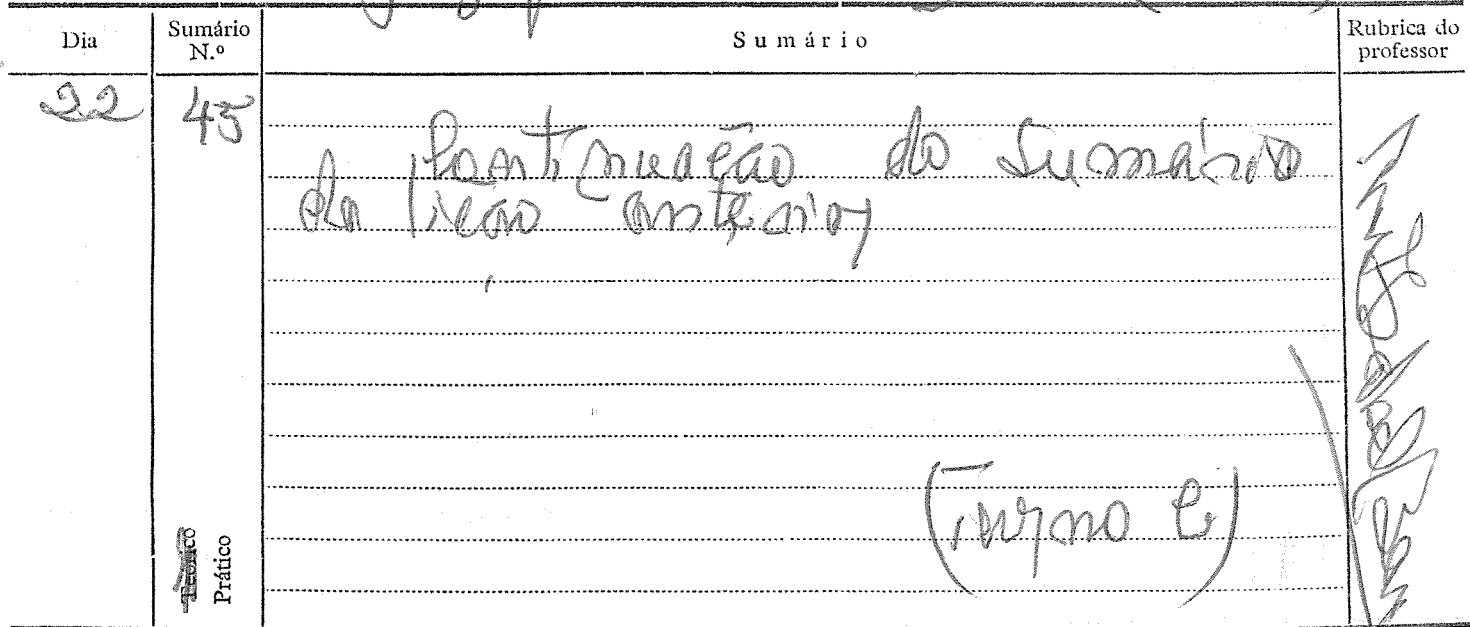 Dia
Sumário
N.º
Sumário
Rubrica do
professor
22
45
Continuação do Sumário
da lição anterior
(Turma C)
Teórico
Prático